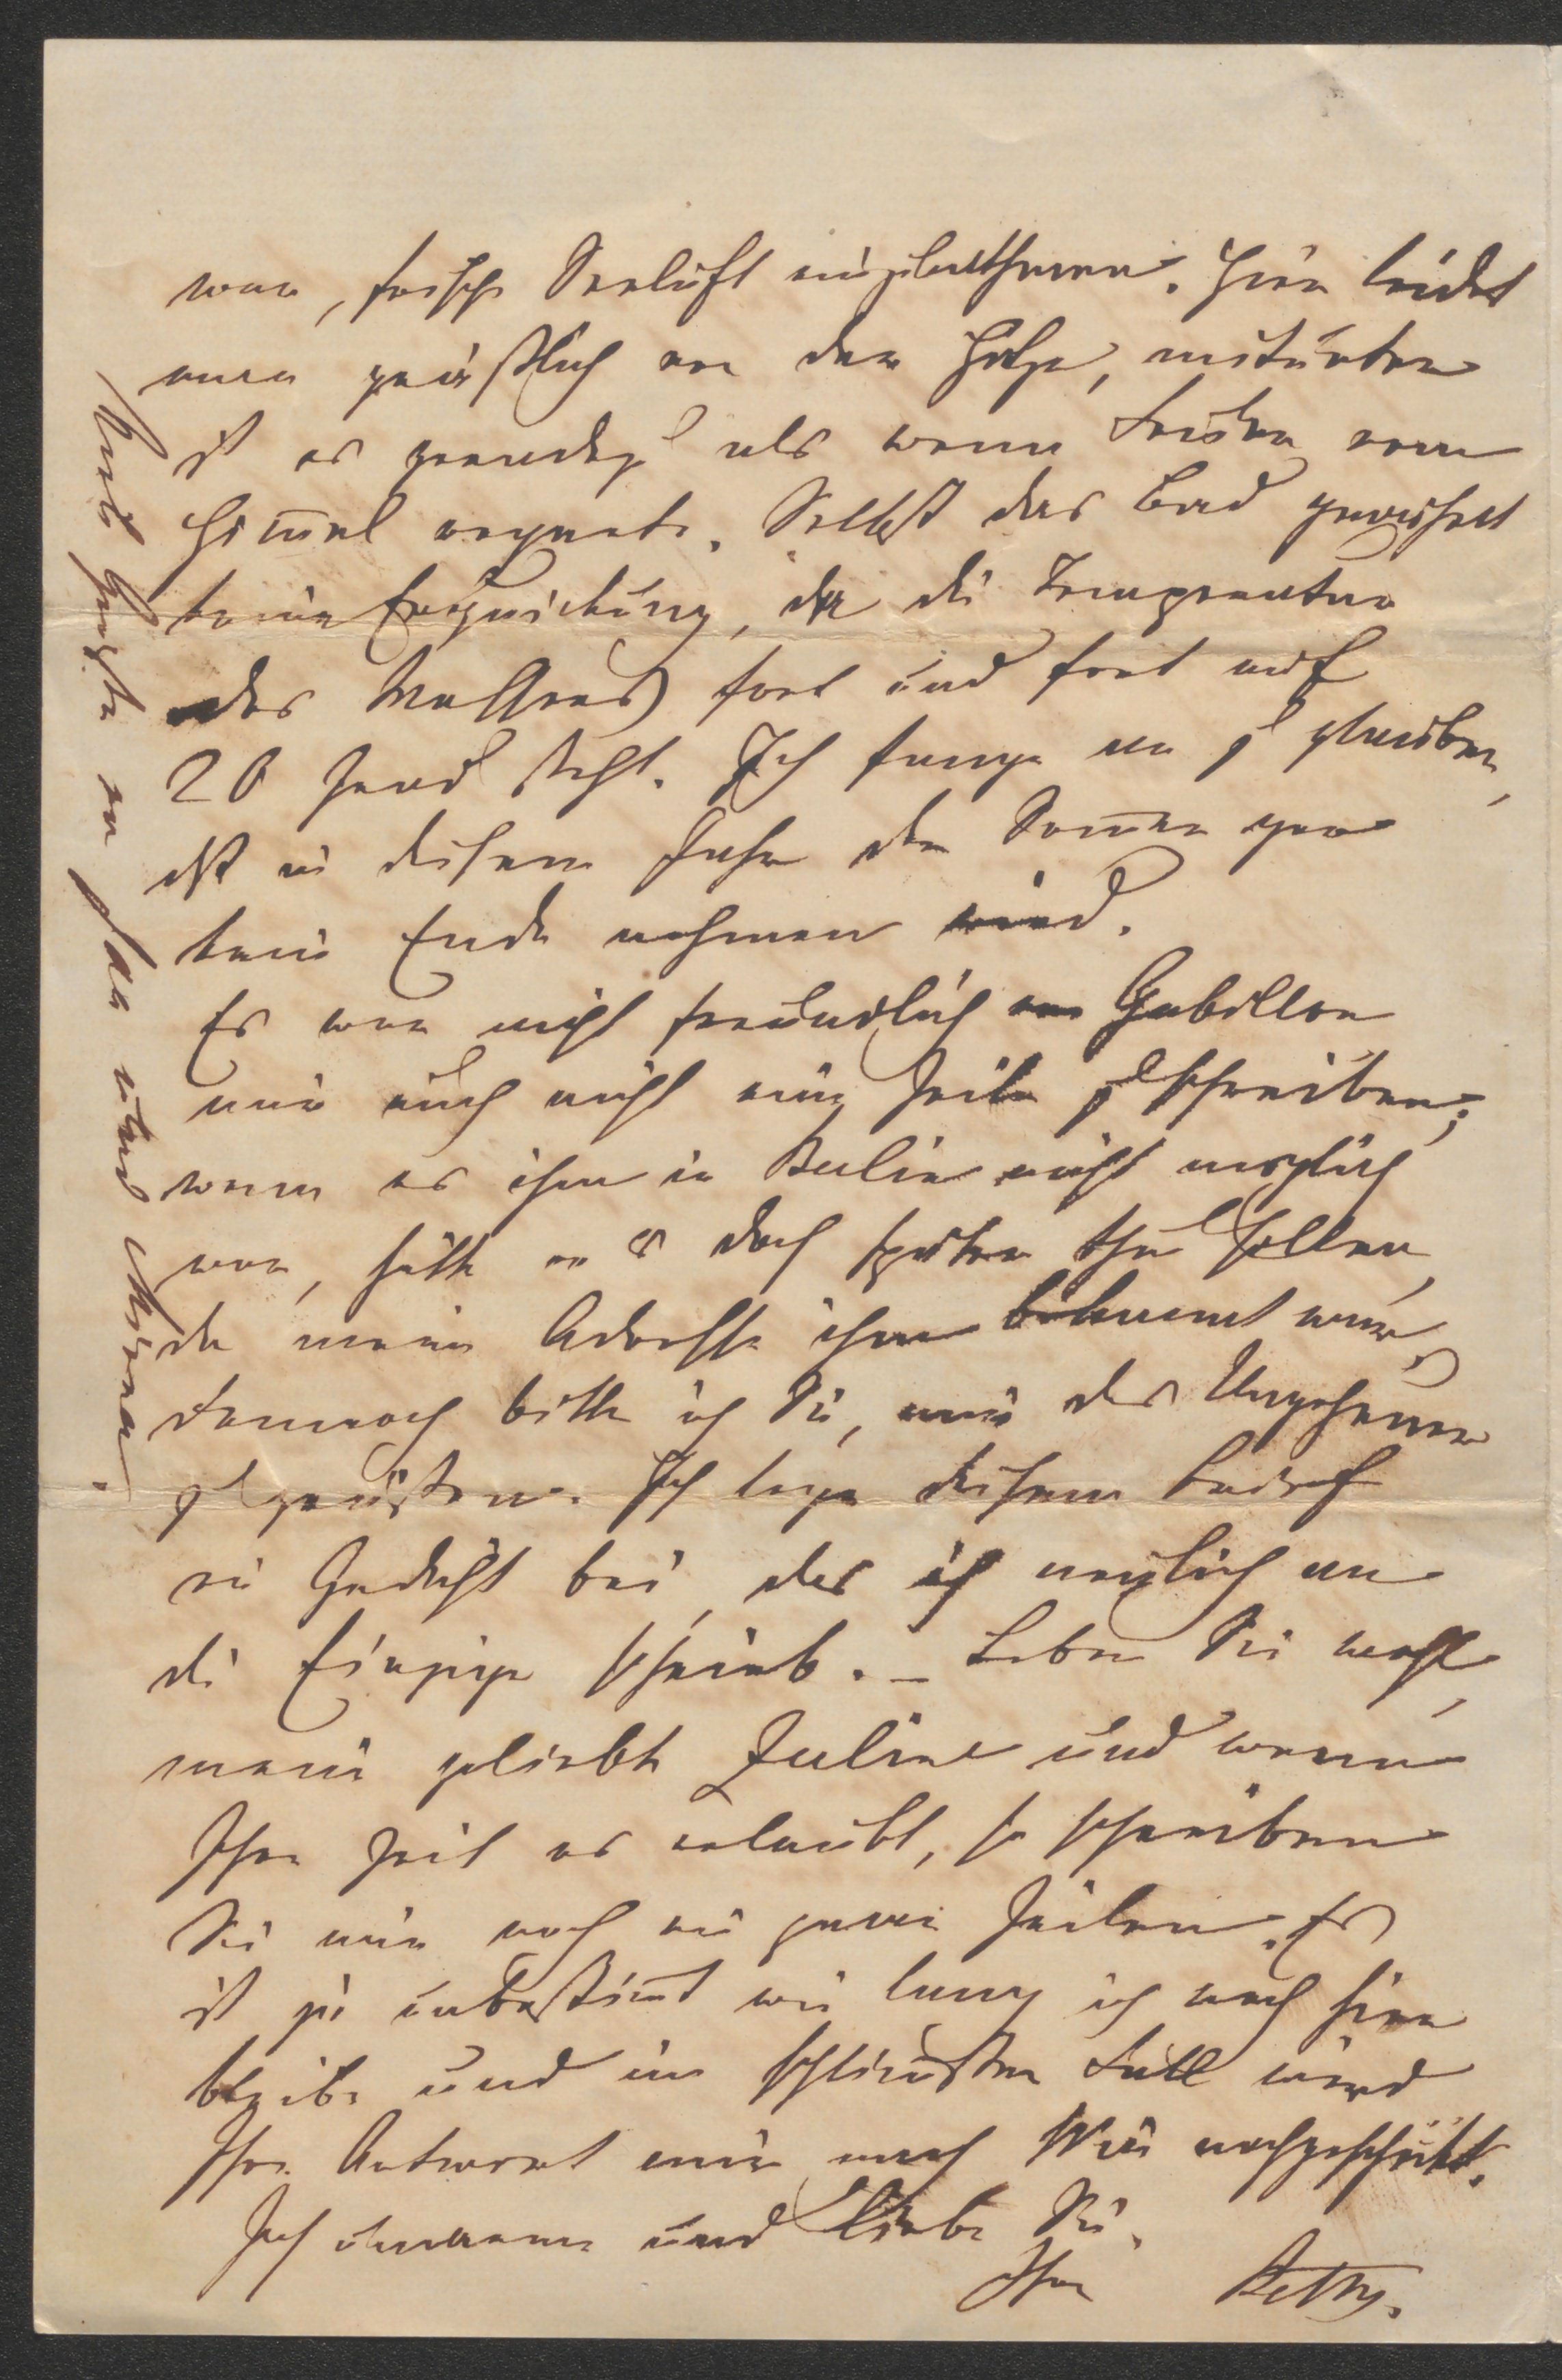 war, frische Seeluft einzuathmen. Hier leidet
man gräßlich von der Hitze, mitunter
ist es geradezu als wenn Feuer vom
Him̅el regnete. Selbst das Bad gewährt
keine Erquickung, da die Temperatur
des Wassers fort und fort auf
20 Grad steht. Ich fange an zu glauben,
daß in diesem Jahr der Som̅er gar
kein Ende nehmen wird.
Es war nicht freundlich von Gabillon
mir auch nicht eine Zeile zu schreiben;
wenn es ihm in Berlin nicht möglich
war, hätte er es doch später thun sollen,
da meine Adresse ihm bekannt war,
dennoch bitte ich Sie, mir das Ungeheuer
zu grüßen. Ich lege diesem Brief
ein Gedicht bei, das ich neulich an
die Einzige schrieb. – Leben Sie wohl,
meine geliebte Julie und wenn
Ihre Zeit es erlaubt, so schreiben
Sie mir noch ein paar Zeilen. Es
ist ja unbestim̅t wie lang ich noch hier
bleibe und im schlimsten Fall wird
Ihre Antwort mir nach Wien nachgeschickt.
Ich umarme und liebe Sie.
Ihre Betty.